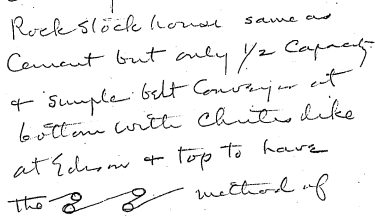 Rock Stock house same as
Cement but only 1/2 Capacity
& simple belt Conveyor at
bottom with Chutes like
at Edison & top to have
the method of